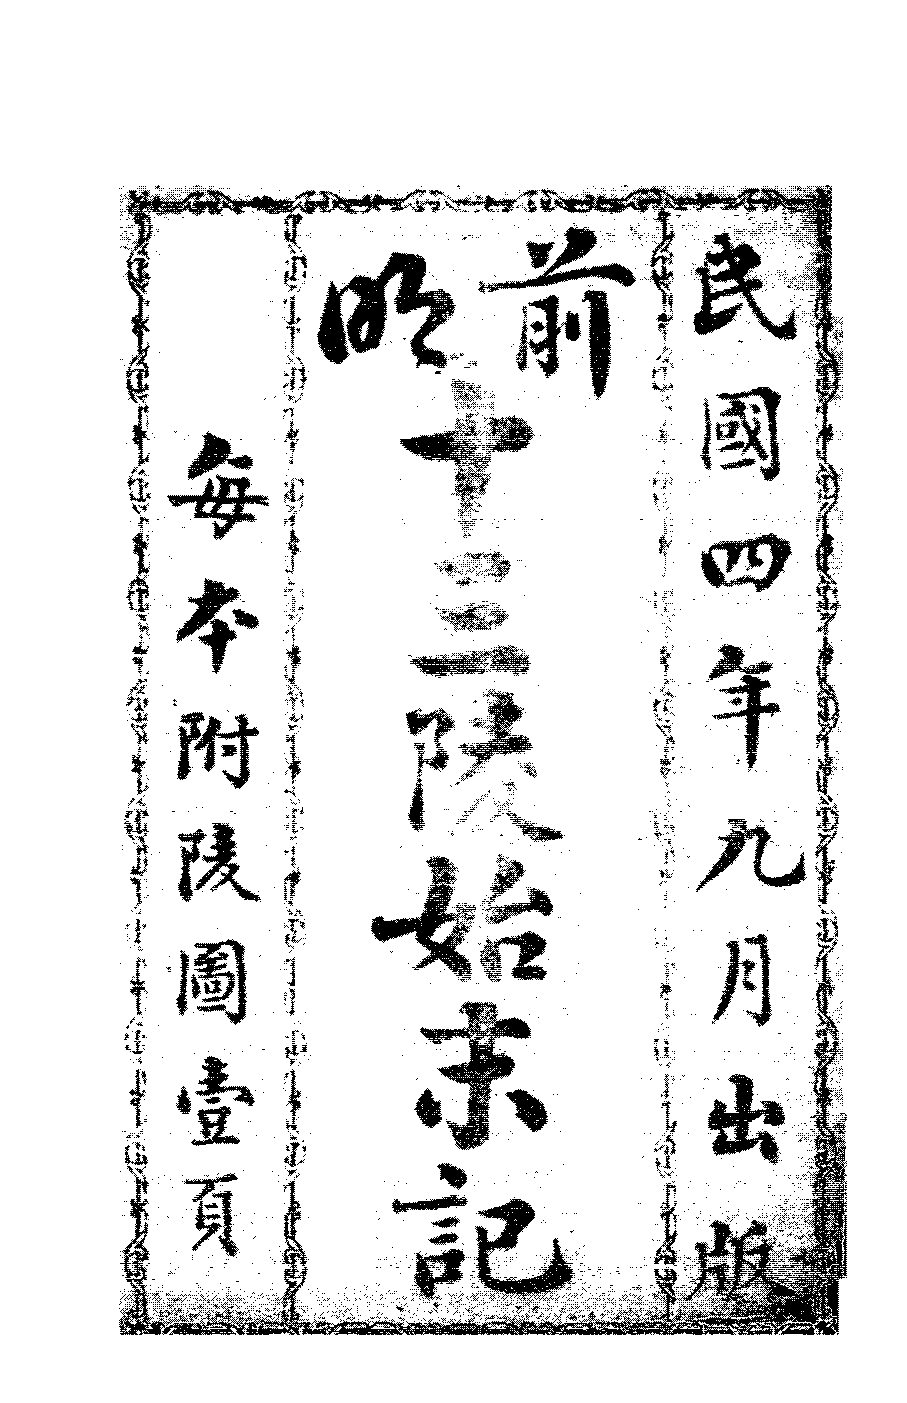 民國四年九月出版
前明十三陵始末記
每本附陵圖壹頁